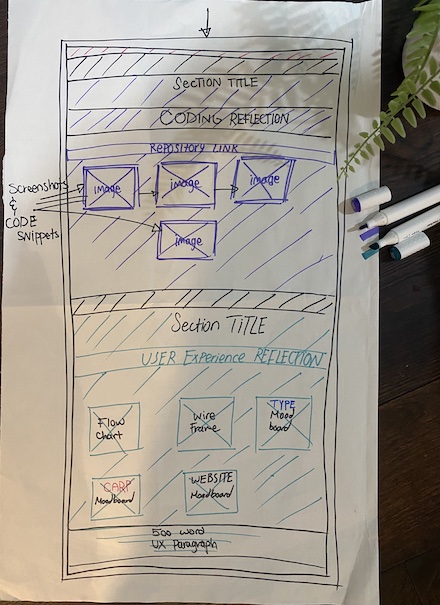 SECTION TITLE
CODING REFLECTION
REPOSITORY LINK
Screenshots
&
CODE
SNIPPETS
image
image
image
image
Section TITLE
USER Experience REFLECTION
FLOW
Chart
Wire
Frame
TYPE
Mood
board
CARP
Moodboard
WEBSITE
Moodboard
500 word
UX Paragraph